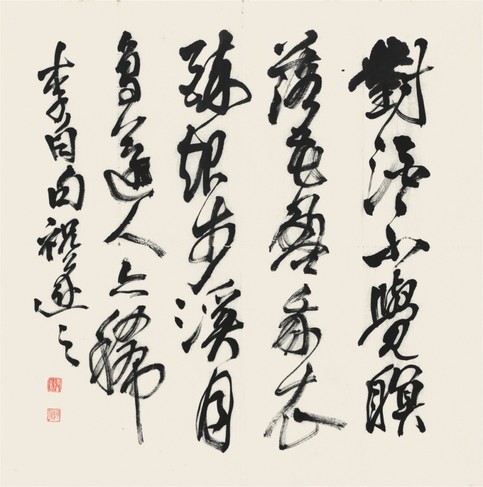 對酒不覺瞑
落花盈我衣
醉起步溪月
鳥還人亦稀
李白句祝遂之